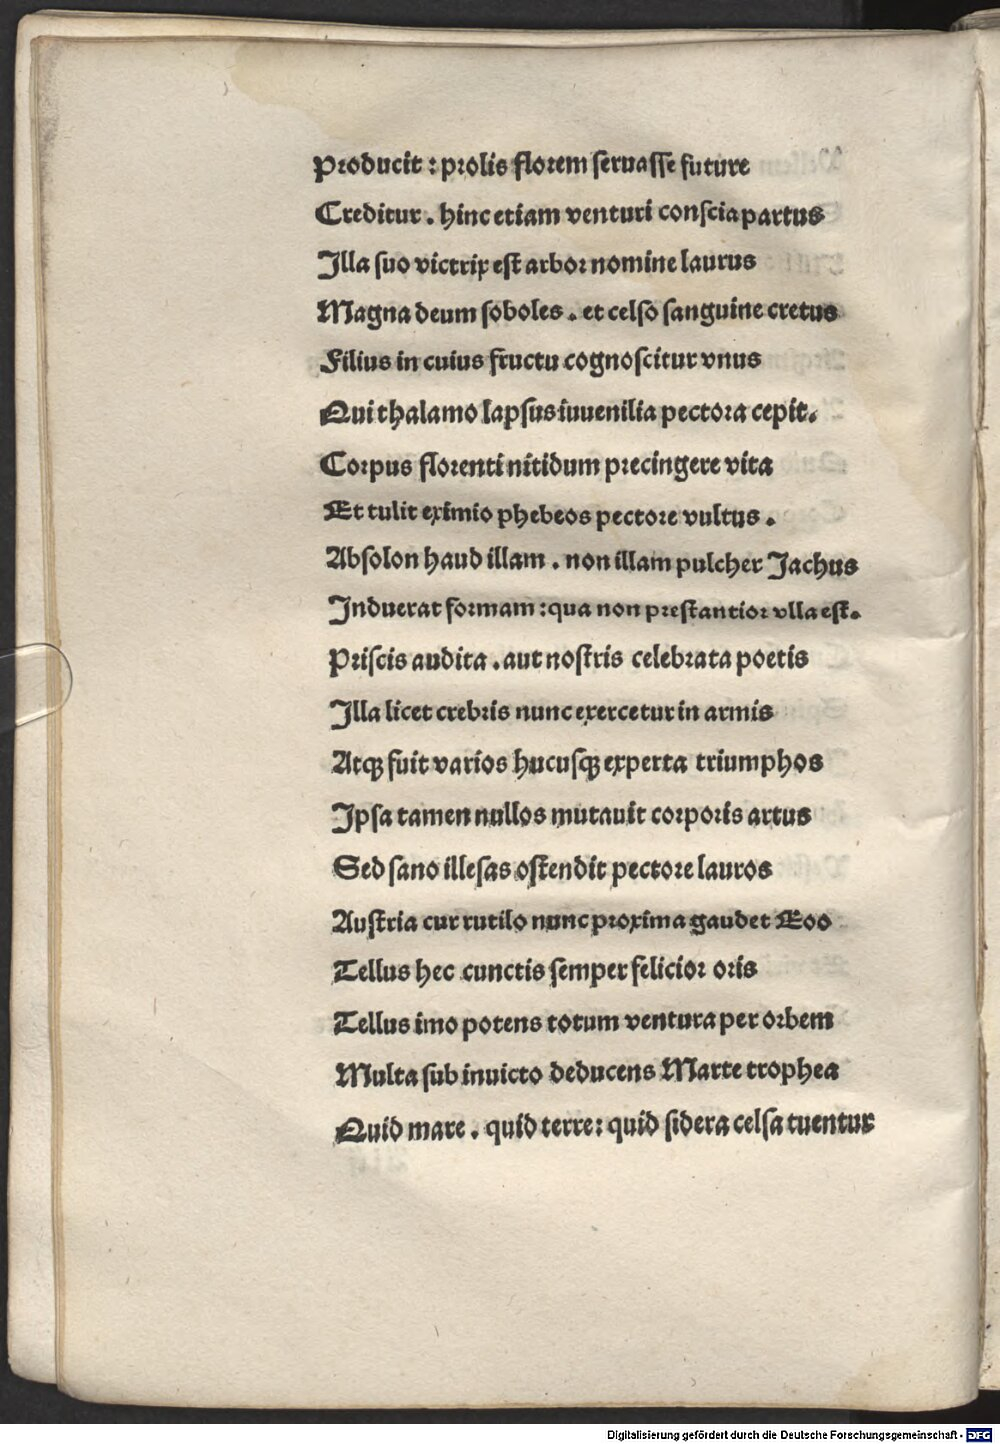 Producit : prolis florem seruasse future
Creditur . hinc etiam venturi conscia partus
Illa suo victrix est arbor nomine laurus
Magna deum soboles . et celso sanguine cretus
Filius in cuius fructu cognoscitur vnus
Qui thalamo lapsus iuuenilia pectora cepit.
Corpus florenti nitidum precingere vita
Et tulit eximio phebeos pectore vultus .
Absolon haud illam . non illam pulcher Jachus
Induerat formam : qua non prestantior vlla est.
Priscis audita . aut nostris celebrata poetis
Illa licet crebris nunc exercetur in armis
Atqꝫ fuit varios hucusqꝫ experta triumphos
Ipsa tamen nullos mutauit corporis artus
Sed sano illesas ostendit pectore lauros
Austria cur rutilo nunc proxima gaudet Eoo
Tellus hec cunctis semper felicior oris
Tellus imo potens totum ventura per orbem
Multa sub inuicto deducens Marte trophea
Quid mare . quid terre : quid sidera celsa tuentur
Digitalisierung gefördert durch die Deutsche Forschungsgemeinschaft - DFG